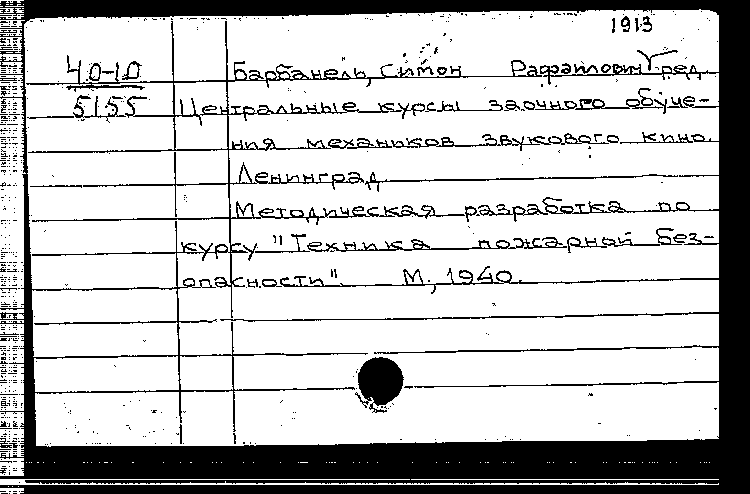 1913
40-10 Барбанель, Симон Рафаилович ред.
5155 Центральные курсы заочного обуче-
ния механиков звукового кино.
Ленинград
Методическая разработка по
курсу "Техника пожарной без-
опасности". М., 1940.